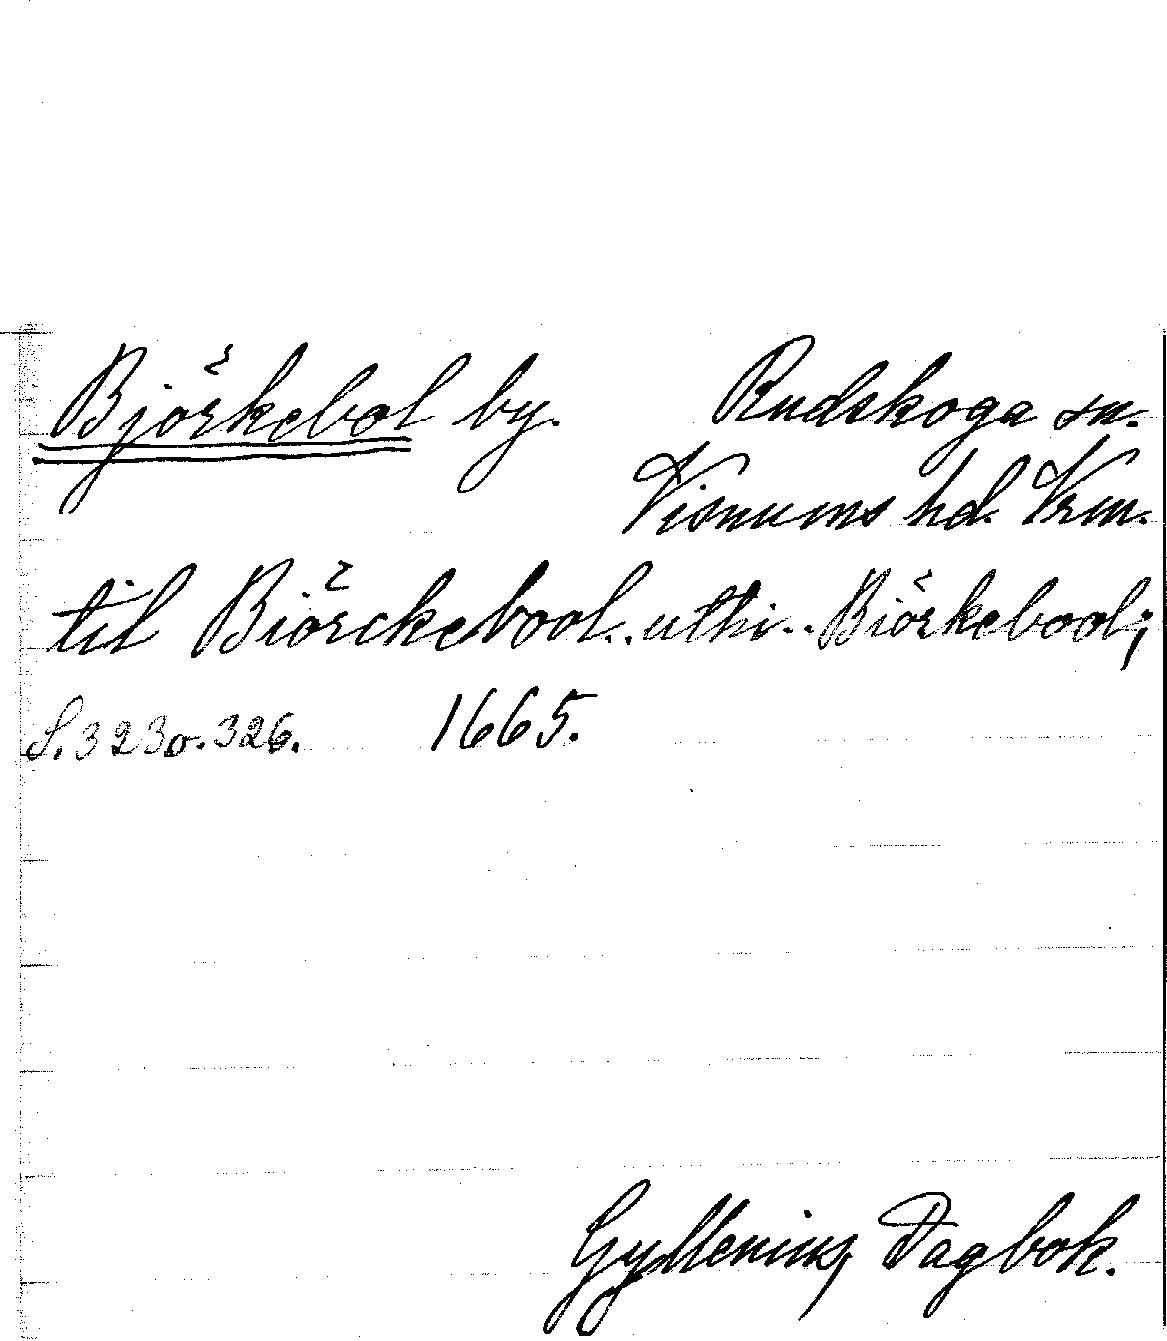 Björkebol by. Rudskoga sn.
Visnums hd. Vrm.
til Biörckebool..uthi..Biörkebool;
S. 323 o. 326. 1665.
Gyllenius, Dagbok.